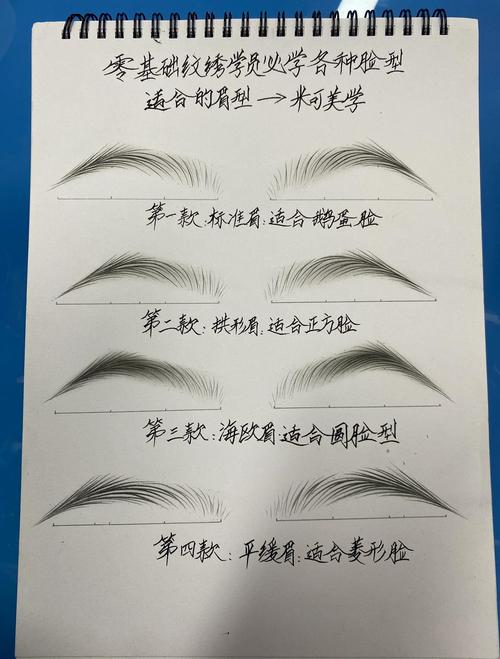 零基础纹绣学员必学各种脸型
适合的眉型→米可美学
第一款:标准眉:适合鹅蛋脸
第二款:拱形眉:适合正方脸
第三款:海欧眉:适合圆脸型
第四款:平缓眉:适合菱形脸